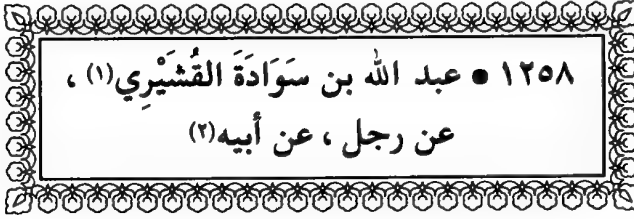 ١٢٥٨ ● عبد الله بن سَوَادَةَ القُشَيْرِي(١) ،
عن رجل ، عن أبيه(٢)